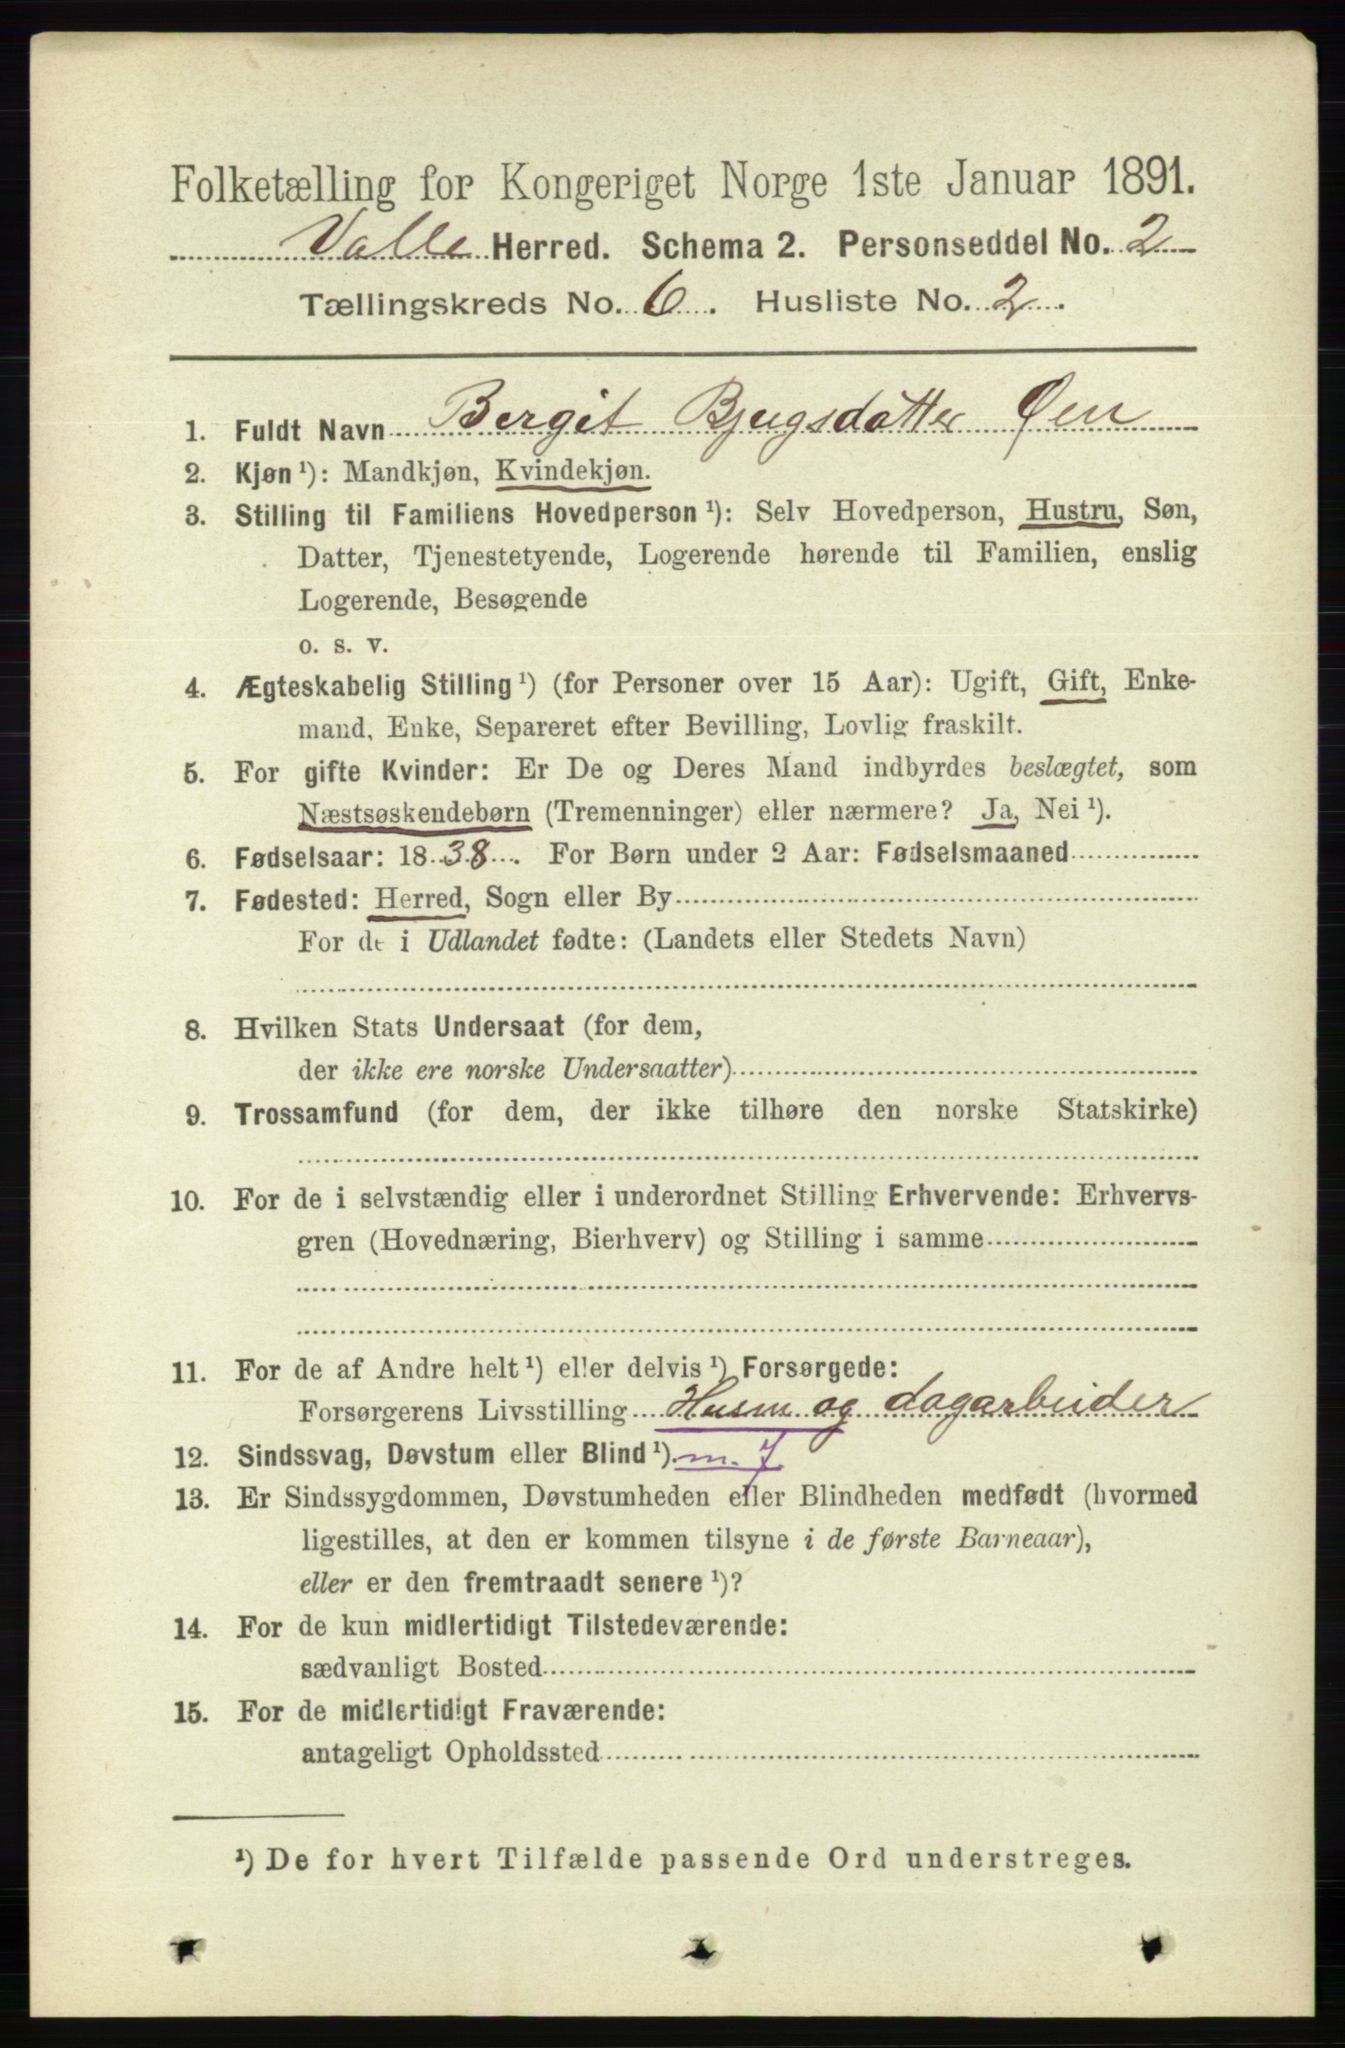 Folketælling for Kongeriget Norge 1ste Januar 1891.
Valle Herred. Schema 2. Personseddel No. 2
Tællingskreds No. 6. Husliste No. 2.
1. Fuldt Navn Bergit Bjugsdatter Øen
2. Kjøn ¹): Mandkjøn, Kvindekjøn.
3. Stilling til Familiens Hovedperson ¹): Selv Hovedperson, Hustru, Søn,
Datter, Tjenestetyende, Logerende hørende til Familien, enslig
Logerende, Besøgende
o. s. v.
4. Ægteskabelig Stilling ¹) (for Personer over 15 Aar): Ugift, Gift, Enke-
mand, Enke, Separeret efter Bevilling, Lovlig fraskilt.
5. For gifte Kvinder: Er De og Deres Mand indbyrdes beslægtet, som
Næstsøskendebørn (Tremenninger) eller nærmere? Ja, Nei ¹).
6. Fødselsaar: 1838. For Børn under 2 Aar: Fødselsmaaned
7. Fødested: Herred, Sogn eller By
For de i Udlandet fødte: (Landets eller Stedets Navn)
8. Hvilken Stats Undersaat (for dem,
der ikke ere norske Undersaatter)
9. Trossamfund (for dem, der ikke tilhøre den norske Statskirke)
10. For de i selvstændig eller i underordnet Stilling Erhvervende: Erhvervs-
gren (Hovednæring, Bierhverv) og Stilling i samme
11. For de af Andre helt ¹) eller delvis ¹) Forsørgede:
Forsørgerens Livsstilling Husm og dagarbeider
12. Sindssvag, Døvstum eller Blind ¹). m. 7
13. Er Sindssygdommen, Døvstumheden eller Blindheden medfødt (hvormed
ligestilles, at den er kommen tilsyne i de første Barneaar),
eller er den fremtraadt senere ¹)?
14. For de kun midlertidigt Tilstedeværende:
sædvanligt Bosted
15. For de midlertidigt Fraværende:
antageligt Opholdssted
¹) De for hvert Tilfælde passende Ord understreges.